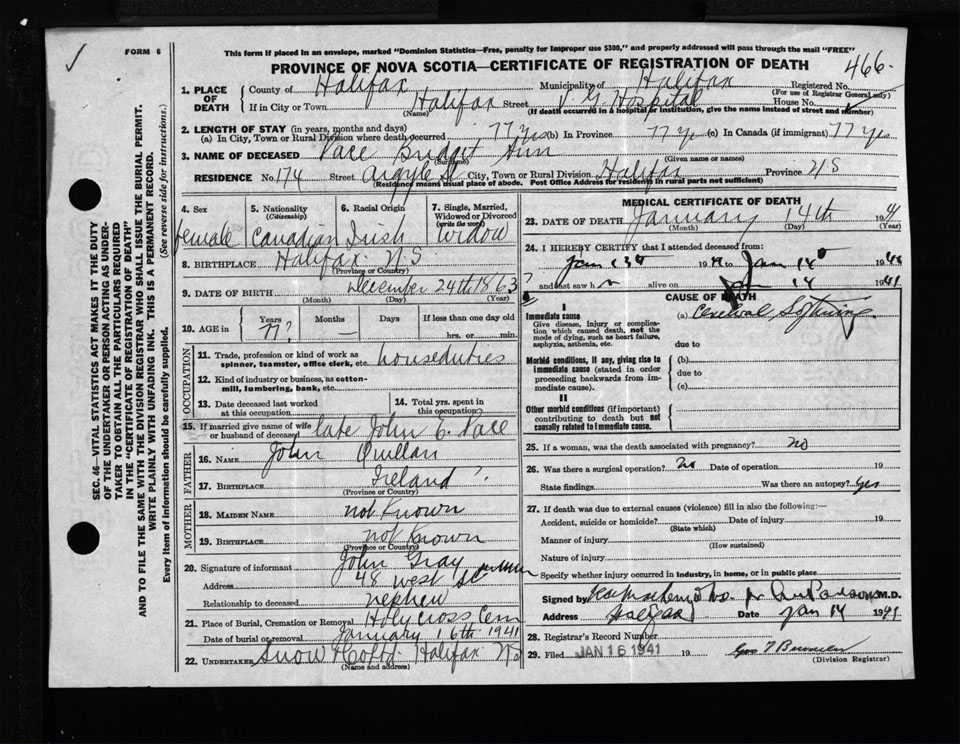 FORM 6
This form if placed in an envelope, marked "Dominion Statistics—Free, penalty for improper use $300," and properly addressed will pass through the mail "FREE"
PROVINCE OF NOVA SCOTIA—CERTIFICATE OF REGISTRATION OF DEATH
466.
SEC. 46—VITAL STATISTICS ACT MAKES IT THE DUTY OF THE UNDERTAKER OR PERSON ACTING AS UNDERTAKER TO OBTAIN ALL THE PARTICULARS REQUIRED IN THE "CERTIFICATE OF REGISTRATION OF DEATH"
AND TO FILE THE SAME WITH THE DIVISION REGISTRAR WHO SHALL ISSUE THE BURIAL PERMIT.
WRITE PLAINLY WITH UNFADING INK. THIS IS A PERMANENT RECORD.
Every item of information should be carefully supplied. (See reverse side for instructions.)
1. PLACE OF DEATH County of Halifax Municipality of Halifax Registered No.
(For use of Registrar General only)
If in City or Town Halifax Street V. G. Hospital House No.
(Name) (If death occurred in a hospital or institution, give the name instead of street and number)
2. LENGTH OF STAY (in years, months and days)
(a) In City, Town or Rural Division where death occurred 77 yrs (b) In Province 77 yrs (c) In Canada (if immigrant) 77 yrs
3. NAME OF DECEASED Pace Bridget Ann
(Surname) (Given name or names)
RESIDENCE No. 174 Street Argyle St City, Town or Rural Division Halifax Province NS
(Residence means usual place of abode. Post Office Address for residents in rural parts not sufficient)
4. Sex 5. Nationality (Citizenship) 6. Racial Origin 7. Single, Married, Widowed or Divorced (write the word)
female Canadian Irish Widow
8. BIRTHPLACE Halifax N.S.
(Province or Country)
9. DATE OF BIRTH December 24th 1863 ?
(Month) (Day) (Year)
10. AGE in Years Months Days If less than one day old
77? — hrs. or min.
OCCUPATION
11. Trade, profession or kind of work as spinner, teamster, office clerk, etc. houseduties
12. Kind of industry or business, as cotton-mill, lumbering, bank, etc.
13. Date deceased last worked at this occupation
14. Total yrs. spent in this occupation
15. If married give name of wife or husband of deceased late John E. Pace
FATHER
16. NAME John Quillan
17. BIRTHPLACE Ireland?
(Province or Country)
MOTHER
18. MAIDEN NAME not known
19. BIRTHPLACE not known
(Province or Country)
20. Signature of informant John Gray
Address 48 West St
Relationship to deceased nephew
21. Place of Burial, Cremation or Removal Holy Cross Cem
Date of burial or removal January 16th 1941
22. UNDERTAKER Snow & Co Ltd Halifax NS
(Name and address)
MEDICAL CERTIFICATE OF DEATH
23. DATE OF DEATH January 14th 1941
(Month) (Day) (Year)
24. I HEREBY CERTIFY that I attended deceased from:
Jan 13th 19 to Jan 14th 19
and last saw h alive on 14 1941
CAUSE OF DEATH
I
Immediate cause
Give disease, injury or complication which caused death, not the mode of dying, such as heart failure, asphyxia, asthenia, etc.
(a) Cerebral
due to
Morbid conditions, if any, giving rise to immediate cause (stated in order proceeding backwards from immediate cause).
(b)
due to
(c)
II
Other morbid conditions (if important) contributing to death but not causally related to immediate cause.
25. If a woman, was the death associated with pregnancy? no
26. Was there a surgical operation? no Date of operation 19
State findings Was there an autopsy? yes
27. If death was due to external causes (violence) fill in also the following:—
Accident, suicide or homicide? Date of injury 19
(State which)
Manner of injury
(How sustained)
Nature of injury
Specify whether injury occurred in industry, in home, or in public place
Signed by M.D.
Address Halifax Date Jan 14 1941
28. Registrar's Record Number
29. Filed JAN 16 1941 19
(Division Registrar)